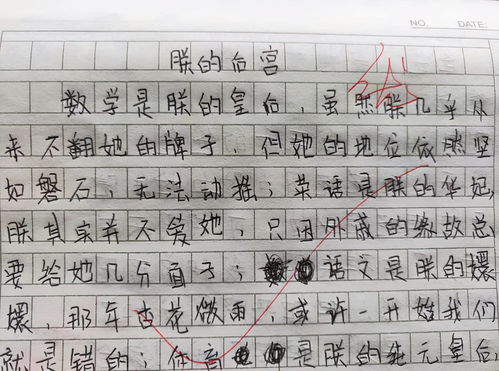 NO. DATE:
朕的后宫
数学是朕的皇后，虽然朕几乎从
来不翻她的牌子，但她的地位依然坚
如磐石，无法动摇；英语是朕的华妃
朕其实并不爱她，只因外戚的缘故总
要给她几分面子；语文是朕的嬛
嬛，那年杏花微雨，或许一开始我们
就是错的；体育是朕的纯元皇后，